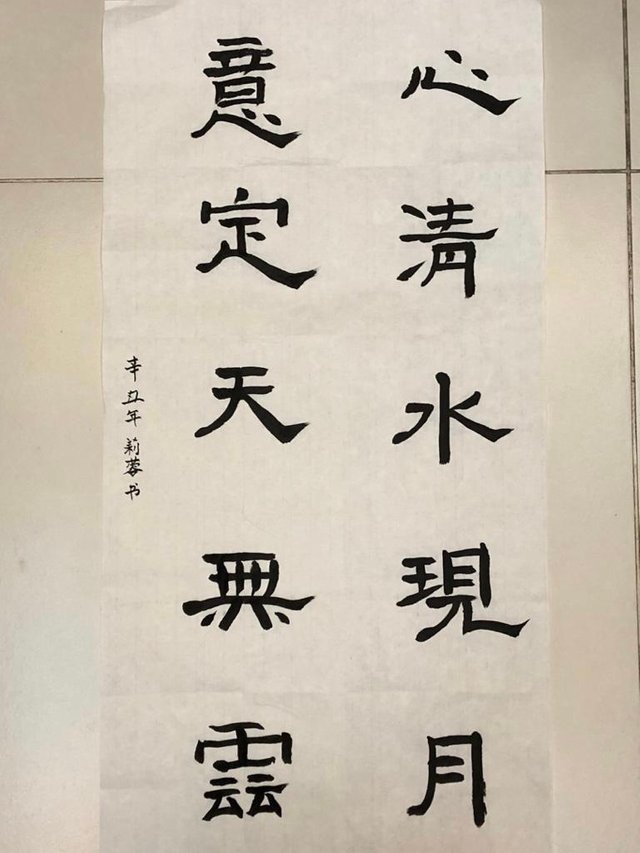 心清水現月
意定天無雲
辛丑年莉蓉书